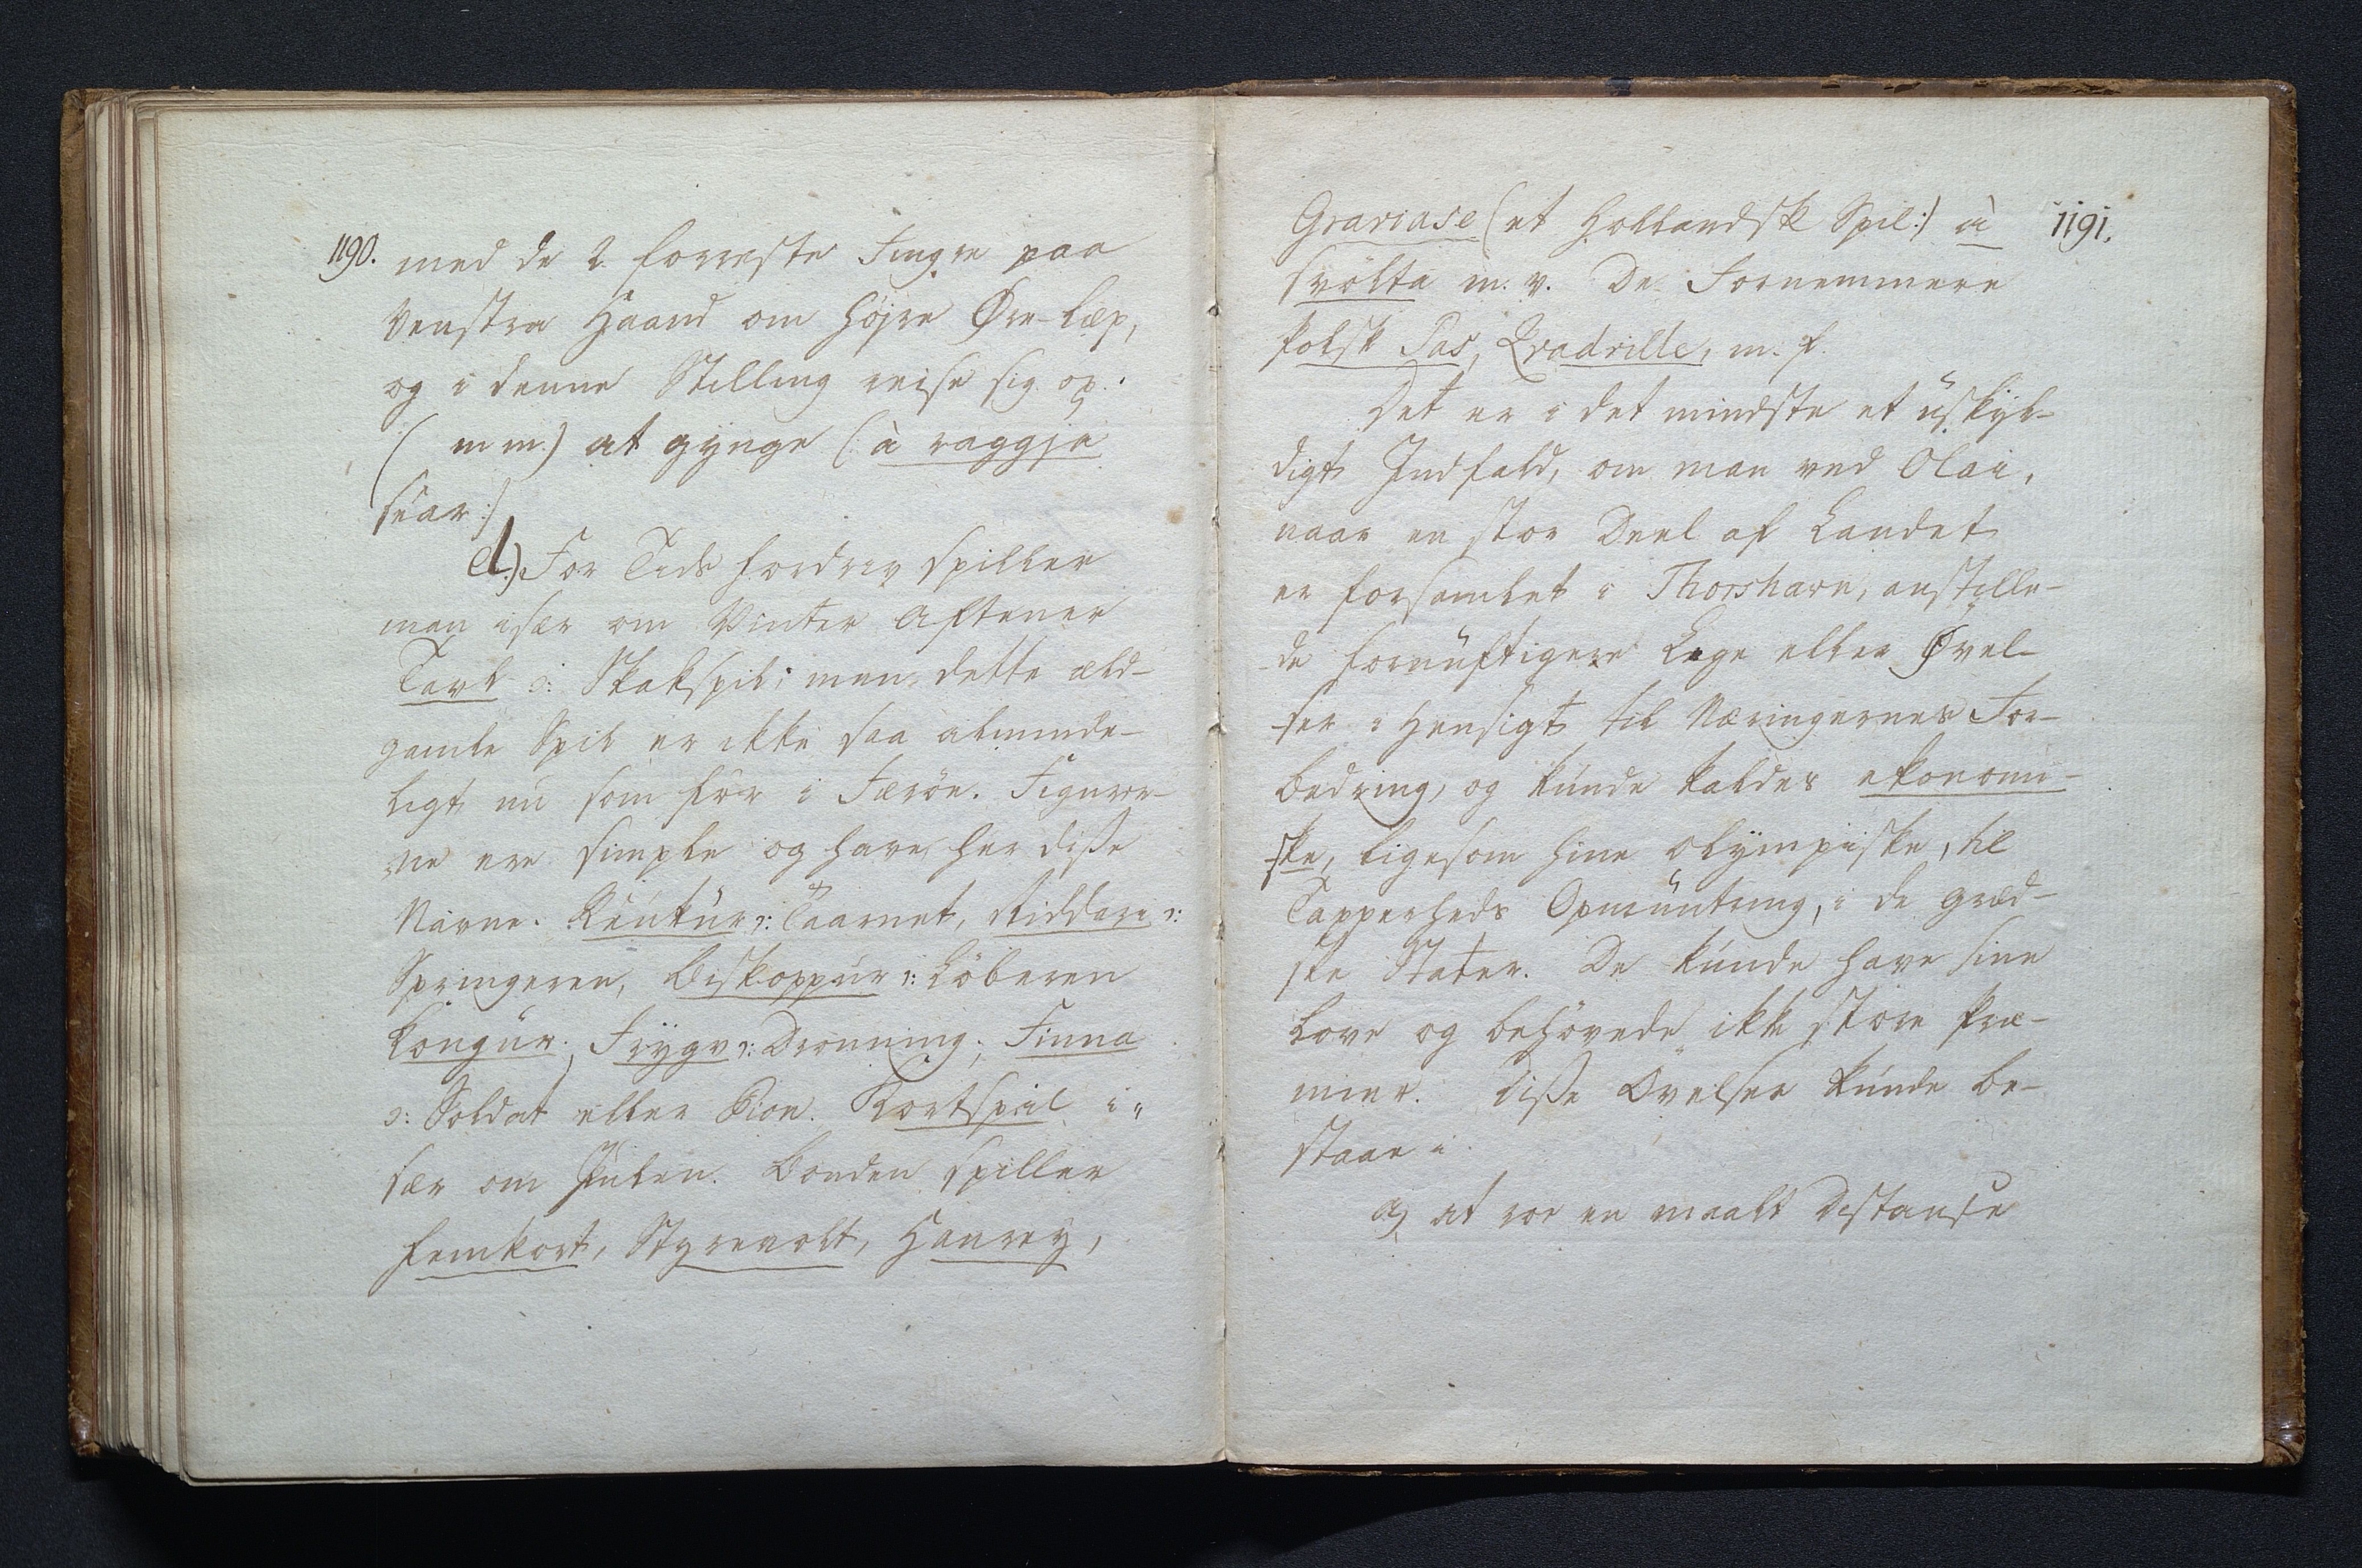 1190.
med de 2 forreste Fingre paa
venstra Haand om højre Øre-Læp,
og i denne Stilling reise sig op.
( mm.) at gÿnge (: à raggja
sêar :)
d.) For Tids fordriv spiller
man især om Vinter Aftener
Tavl ɔ: Skakspil; men dette æld-
gamle Spil er ikke saa alminde-
ligt nu som för i Færöe. Figurer-
ne ere simple og have her diße
Navne. Rêukur ɔ: Taarnet, Riddari ɔ:
Springeren, Biskoppur ɔ: Löberen
Kongur. Frÿgv ɔ: Dronning; Finna
ɔ: Soldat eller Pion. Kortspil i„
sær om Julen. Bonden spiller
femkort, Styrevolt, Hanrey,
1191.
Graviase (: et hollandsk Spil :) à
svölta m. v. De Fornemmere
polsk Pas, Qvadrille, m. f.
Det er i det mindste et uskÿl-
digt Indfald, om man ved Olai,
naar en stor Deel af Landet
er forsamlet i Thorshavn, anstille-
de fornuftigere Lege eller Øvel-
ser i Hensigt til Næringernes For-
bedring, og kunde kaldes økonomi-
ske, ligesom hine olÿmpiske, til
Tapperheds Opmuntring, i de græd-
ske Stater. De kunde have sine
Love og behövede ikke store Præ-
mier. Diße Övelser kunde be-
staae i
a) at roe en maalt Distanse